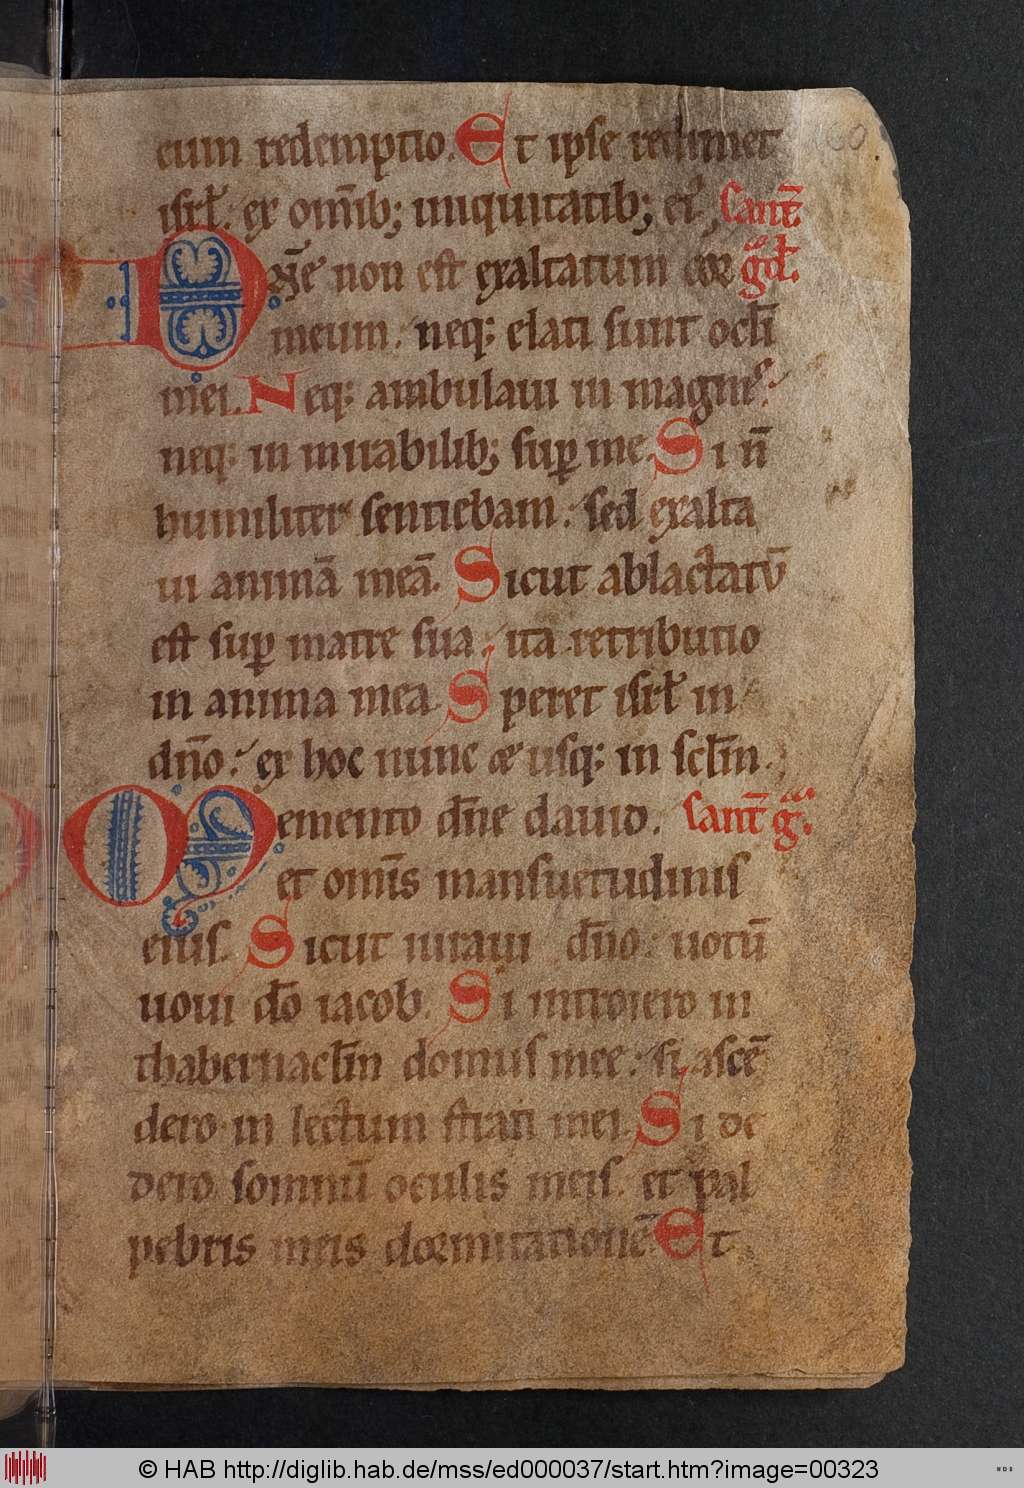 160
eum redemptio. Et ipse redimet
isrł. ex om̅ib; iniquitatib; ei᷒. Cant̅
Dn̅e non est exaltatum cor gͣd̅.
meum. neq; elati sunt oc̅li
mei. Neq; ambulaui in magnis
neq; in mirabilib; suꝑ me. Si n̅
humiliter sentiebam: sed exalta
ui anima̅ mea̅. Sicut ablactatu̅
est suꝑ matre sua. ita retributio
in anima mea. Speret isrł in
dn̅o. ex hoc nunc & usq; in sc̅lm.
Memento dn̅e dauid. Cant̅ gͣ.
et om̅is mansuetudinis
eius. Sicut iuraui dn̅o: uotu̅
uoui do̅ iacob. Si introiero in
thabernac̅lm domus mee: si asce̅
dero in lectum strati mei. Si de
dero somnu̅ oculis meis. et pal
pebris meis dormitatione̅. Et
© HAB http://diglib.hab.de/mss/ed000037/start.htm?image=00323